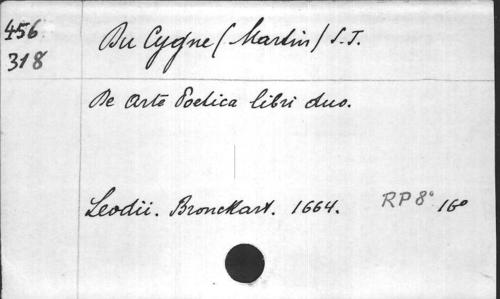 456
318
Du Cygne (Martin) S.J.
De Arte Poetica libri duo.
Leodii. Bronckart. 1664. RP8° 160